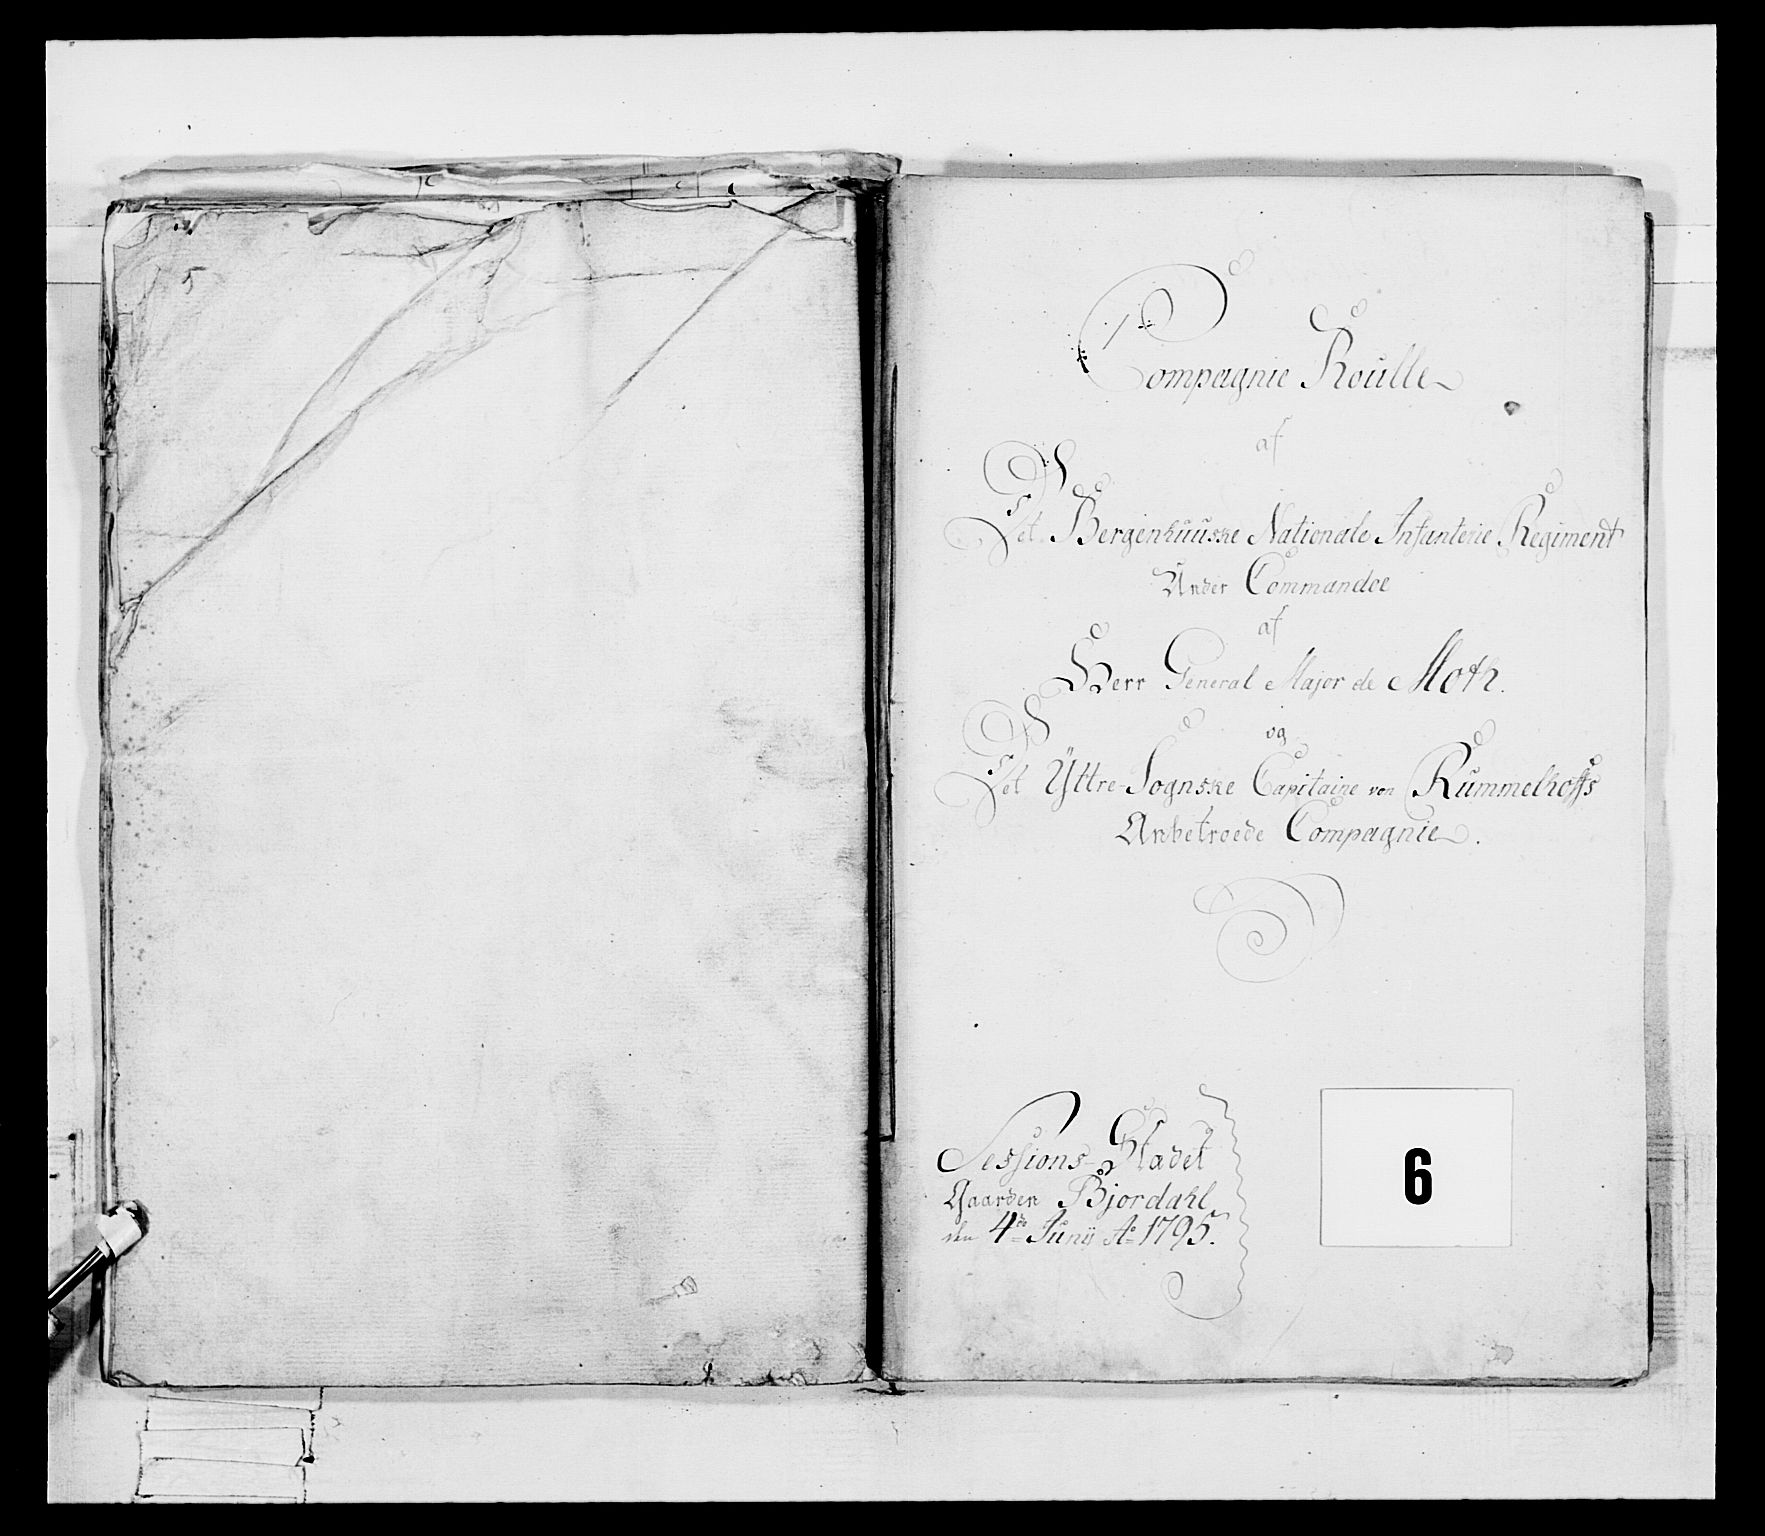 Compagnie Roulle
af
Det Bergenhuuske Nationale Infanterie Regiment
Under Commandoe
af
Herr General Major de Moth.
og
Det Ÿttre-Sognske Capitaine von Rummelhoffs
Anbetroede Compagnie.
Sessions-Stadet
Gaarden Bjordahl
den 4de Junij Ao 1795.
6